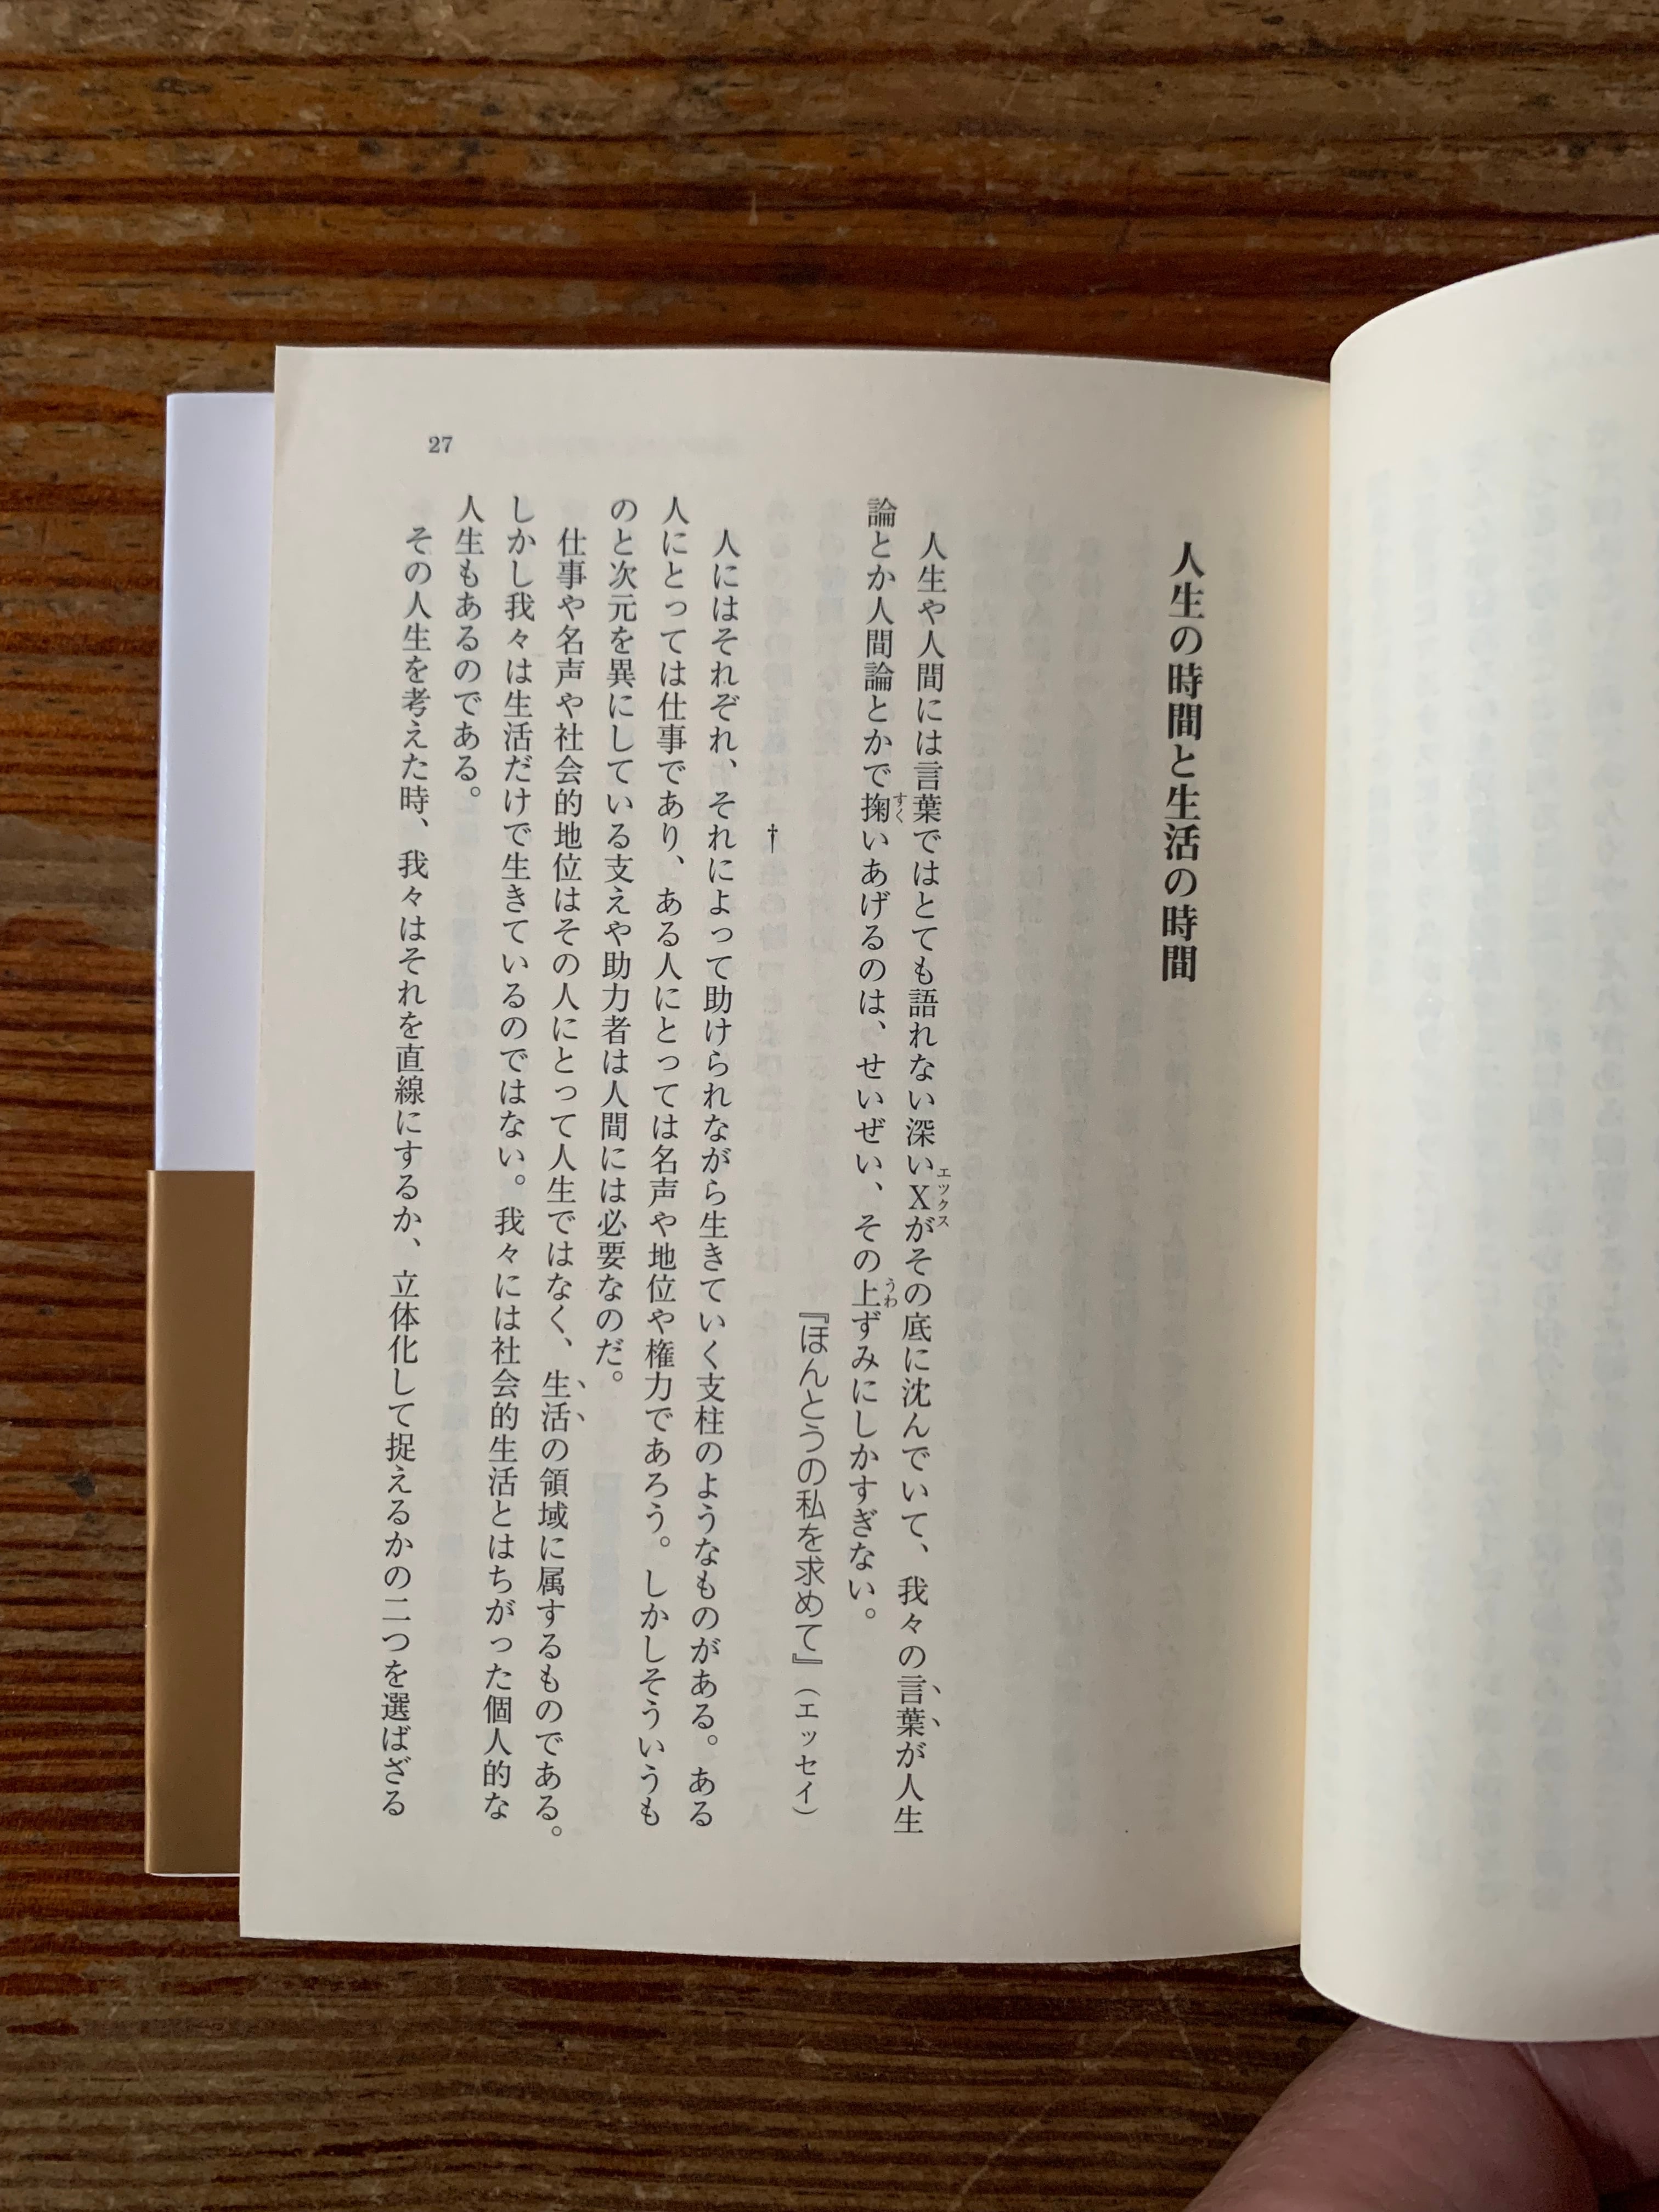 人生の時間と生活の時間
人生や人間には言葉ではとても語れない深いXがその底に沈んでいて、我々の言葉が人生
論とか人間論とかで掬いあげるのは、せいぜい、その上ずみにしかすぎない。
『ほんとうの私を求めて』（エッセイ）
†
人にはそれぞれ、それによって助けられながら生きていく支柱のようなものがある。ある
人にとっては仕事であり、ある人にとっては名声や地位や権力であろう。しかしそういうも
のと次元を異にしている支えや助力者は人間には必要なのだ。
仕事や名声や社会的地位はその人にとって人生ではなく、生活の領域に属するものである。
しかし我々は生活だけで生きているのではない。我々には社会的生活とはちがった個人的な
人生もあるのである。
その人生を考えた時、我々はそれを直線にするか、立体化して捉えるかの二つを選ばざる
27